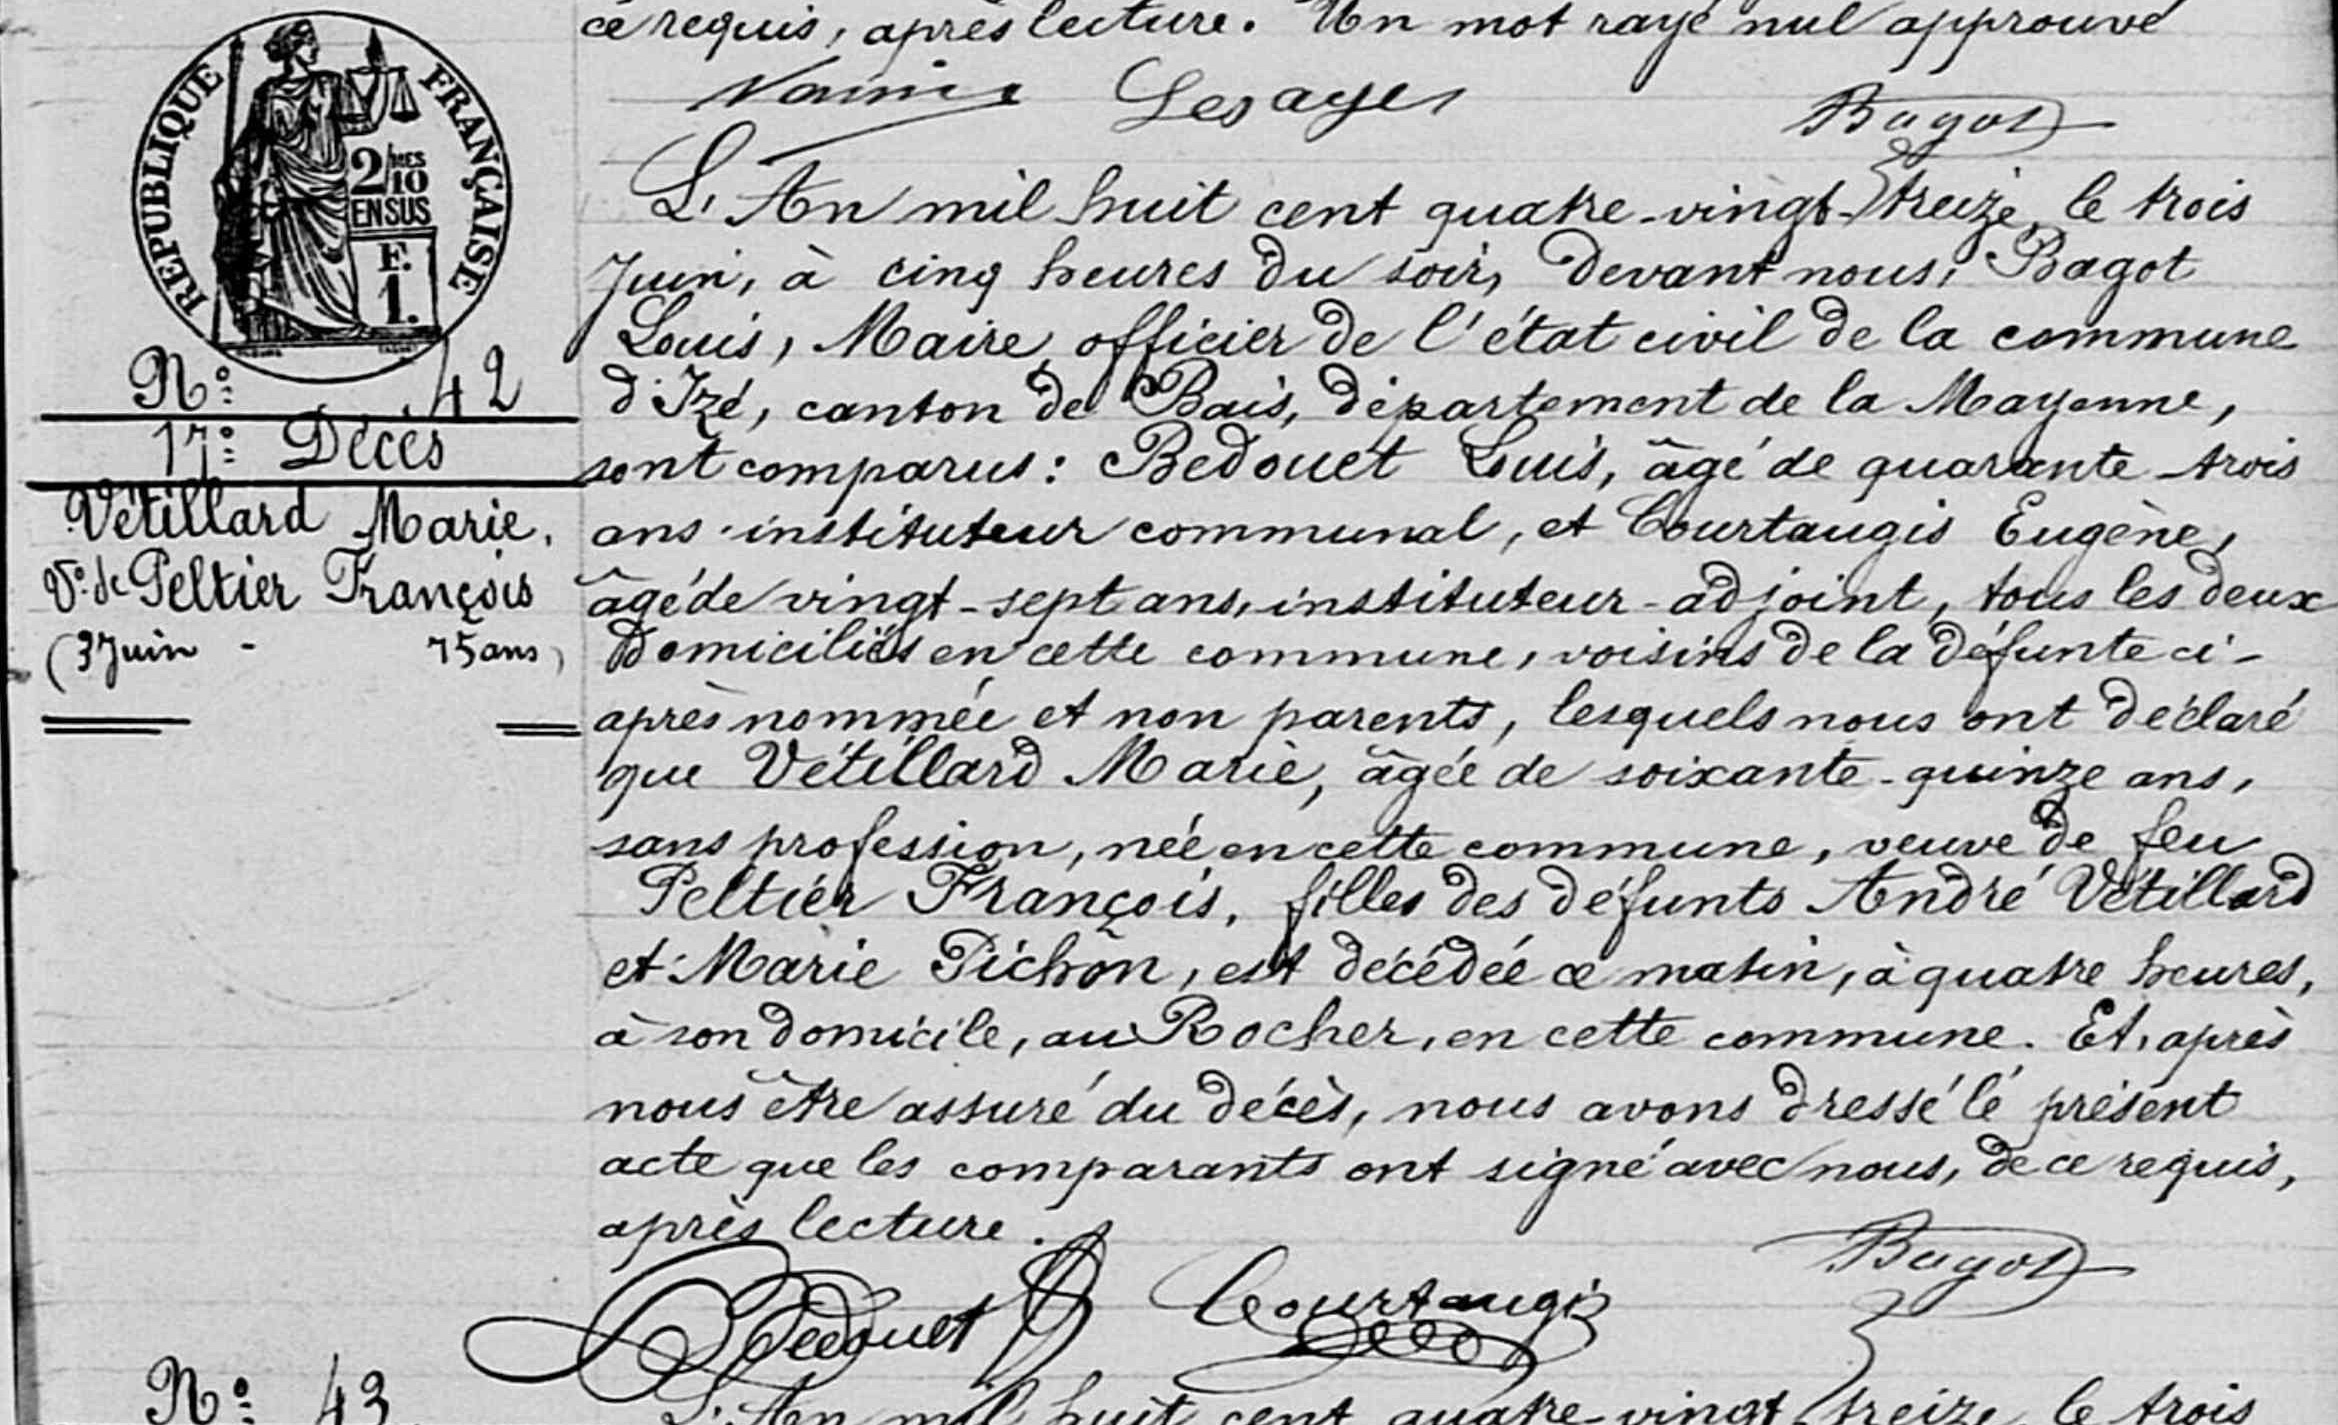 ce requis, après lecture. Un mot rayé nul approuvé
Lesage Bagot
REPUBLIQUE FRANÇAISE
2/10MES
EN SUS
F.
1.
N° 42
17° Décès
Vétillard Marie,
Vve de Peltier François
(3 Juin - 75 ans)
L'An mil huit cent quatre-vingt-treize, le trois
Juin, à cinq heures du soir, devant nous, Bagot
Louis, Maire, officier de l'état civil de la commune
d'Izé, canton de Bais, département de la Mayenne,
sont comparus: Bedouet Louis, âgé de quarante-trois
ans instituteur communal, et Courtaugis Eugène,
âgé de vingt-sept ans, instituteur-adjoint, tous les deux
domiciliés en cette commune, voisins de la défunte ci-
après nommée et non parents, lesquels nous ont déclaré
que Vétillard Marie, âgée de soixante-quinze ans,
sans profession, née en cette commune, veuve de feu
Peltier François, filles des défunts André Vétillard
et Marie Pichon, est décédée ce matin, à quatre heures,
à son domicile, au Rocher, en cette commune. Et, après
nous être assuré du décès, nous avons dressé le présent
acte que les comparants ont signé avec nous, de ce requis,
après lecture.
Bedouet Courtaugis Bagot
N° 43
L'An mil huit cent quatre-vingt-treize, le trois